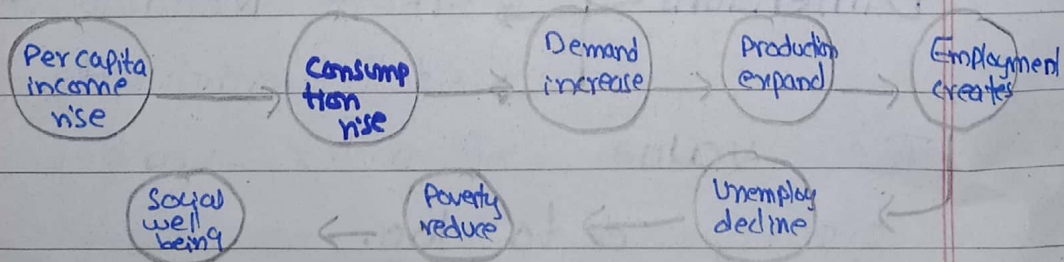 Per capita
income
rise
Consump
tion
rise
Demand
increase
Production
expand
Employment
creates
Unemploy
decline
Poverty
reduce
Social
well
being